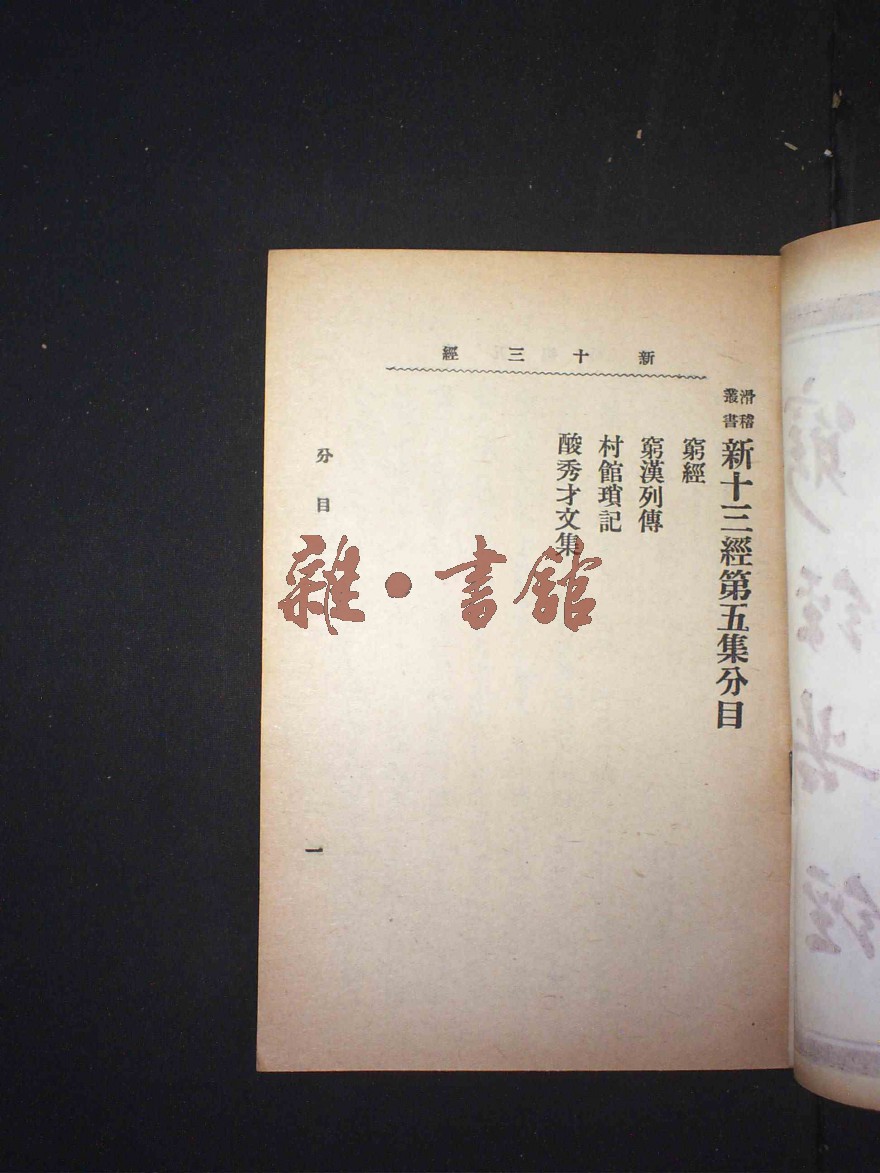 新十三經
滑稽叢書
新十三經第五集分目
窮經
窮漢列傳
村館瑣記
酸秀才文集
分目
一
雜·書館